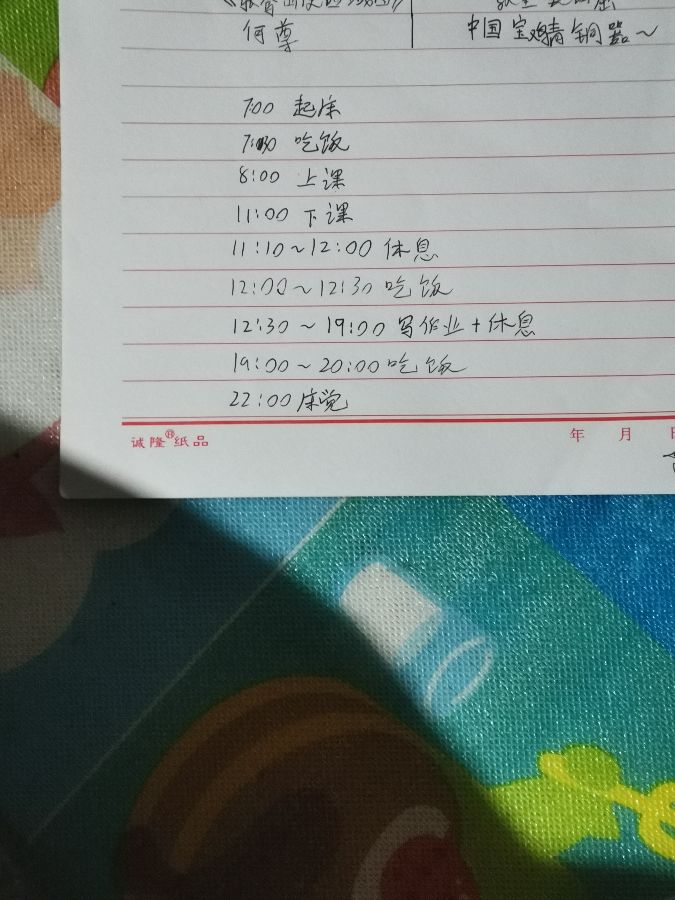 何尊 中国宝鸡青铜器～
7:00 起床
7:30 吃饭
8:00 上课
11:00 下课
11:10～12:00 休息
12:00～12:30 吃饭
12:30～19:00 写作业+休息
19:00～20:00 吃饭
22:00 床觉
诚隆®纸品 年 月 日